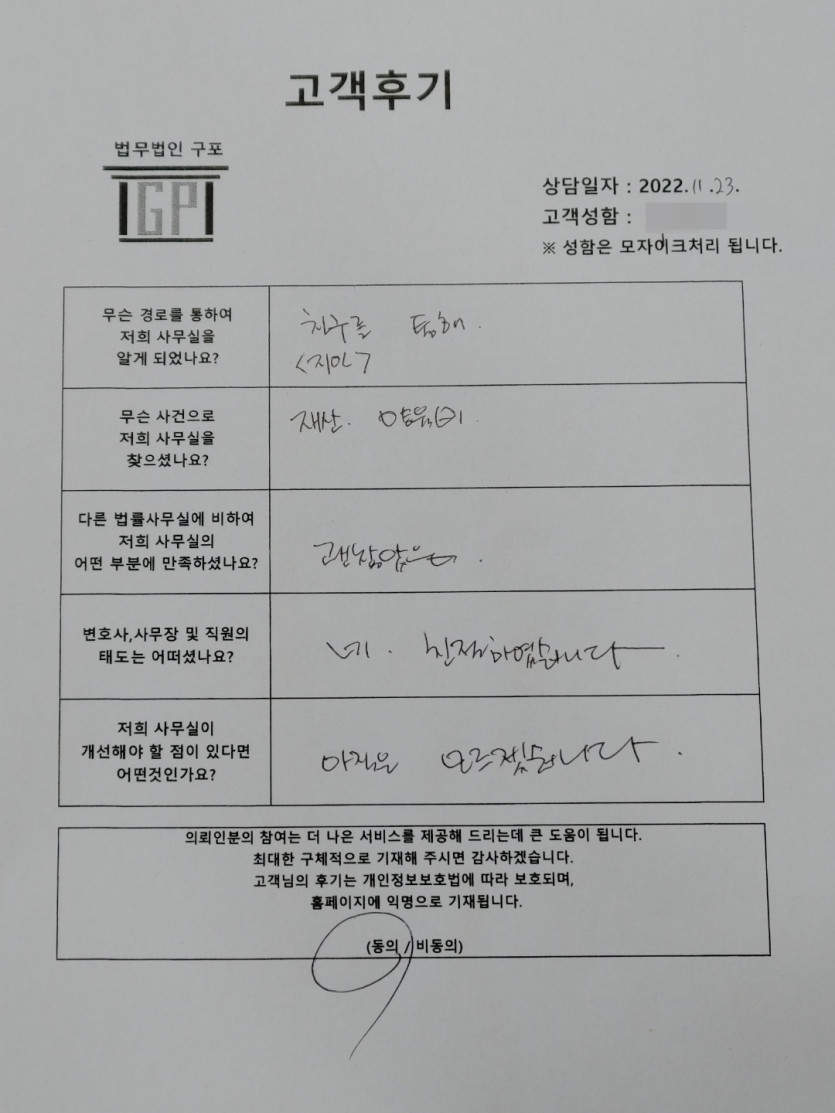 고객후기
법무법인 구포
GP
상담일자 : 2022.11.23.
고객성함 :
※ 성함은 모자이크처리 됩니다.
무슨 경로를 통하여
저희 사무실을
알게 되었나요?
친구를 통해.
<지인>
무슨 사건으로
저희 사무실을
찾으셨나요?
재산.
다른 법률사무실에 비하여
저희 사무실의
어떤 부분에 만족하셨나요?
변호사,사무장 및 직원의
태도는 어떠셨나요?
네. 친절하였습니다.
저희 사무실이
개선해야 할 점이 있다면
어떤것인가요?
아직은 모르겠습니다.
의뢰인분의 참여는 더 나은 서비스를 제공해 드리는데 큰 도움이 됩니다.
최대한 구체적으로 기재해 주시면 감사하겠습니다.
고객님의 후기는 개인정보보호법에 따라 보호되며,
홈페이지에 익명으로 기재됩니다.
(동의 / 비동의)